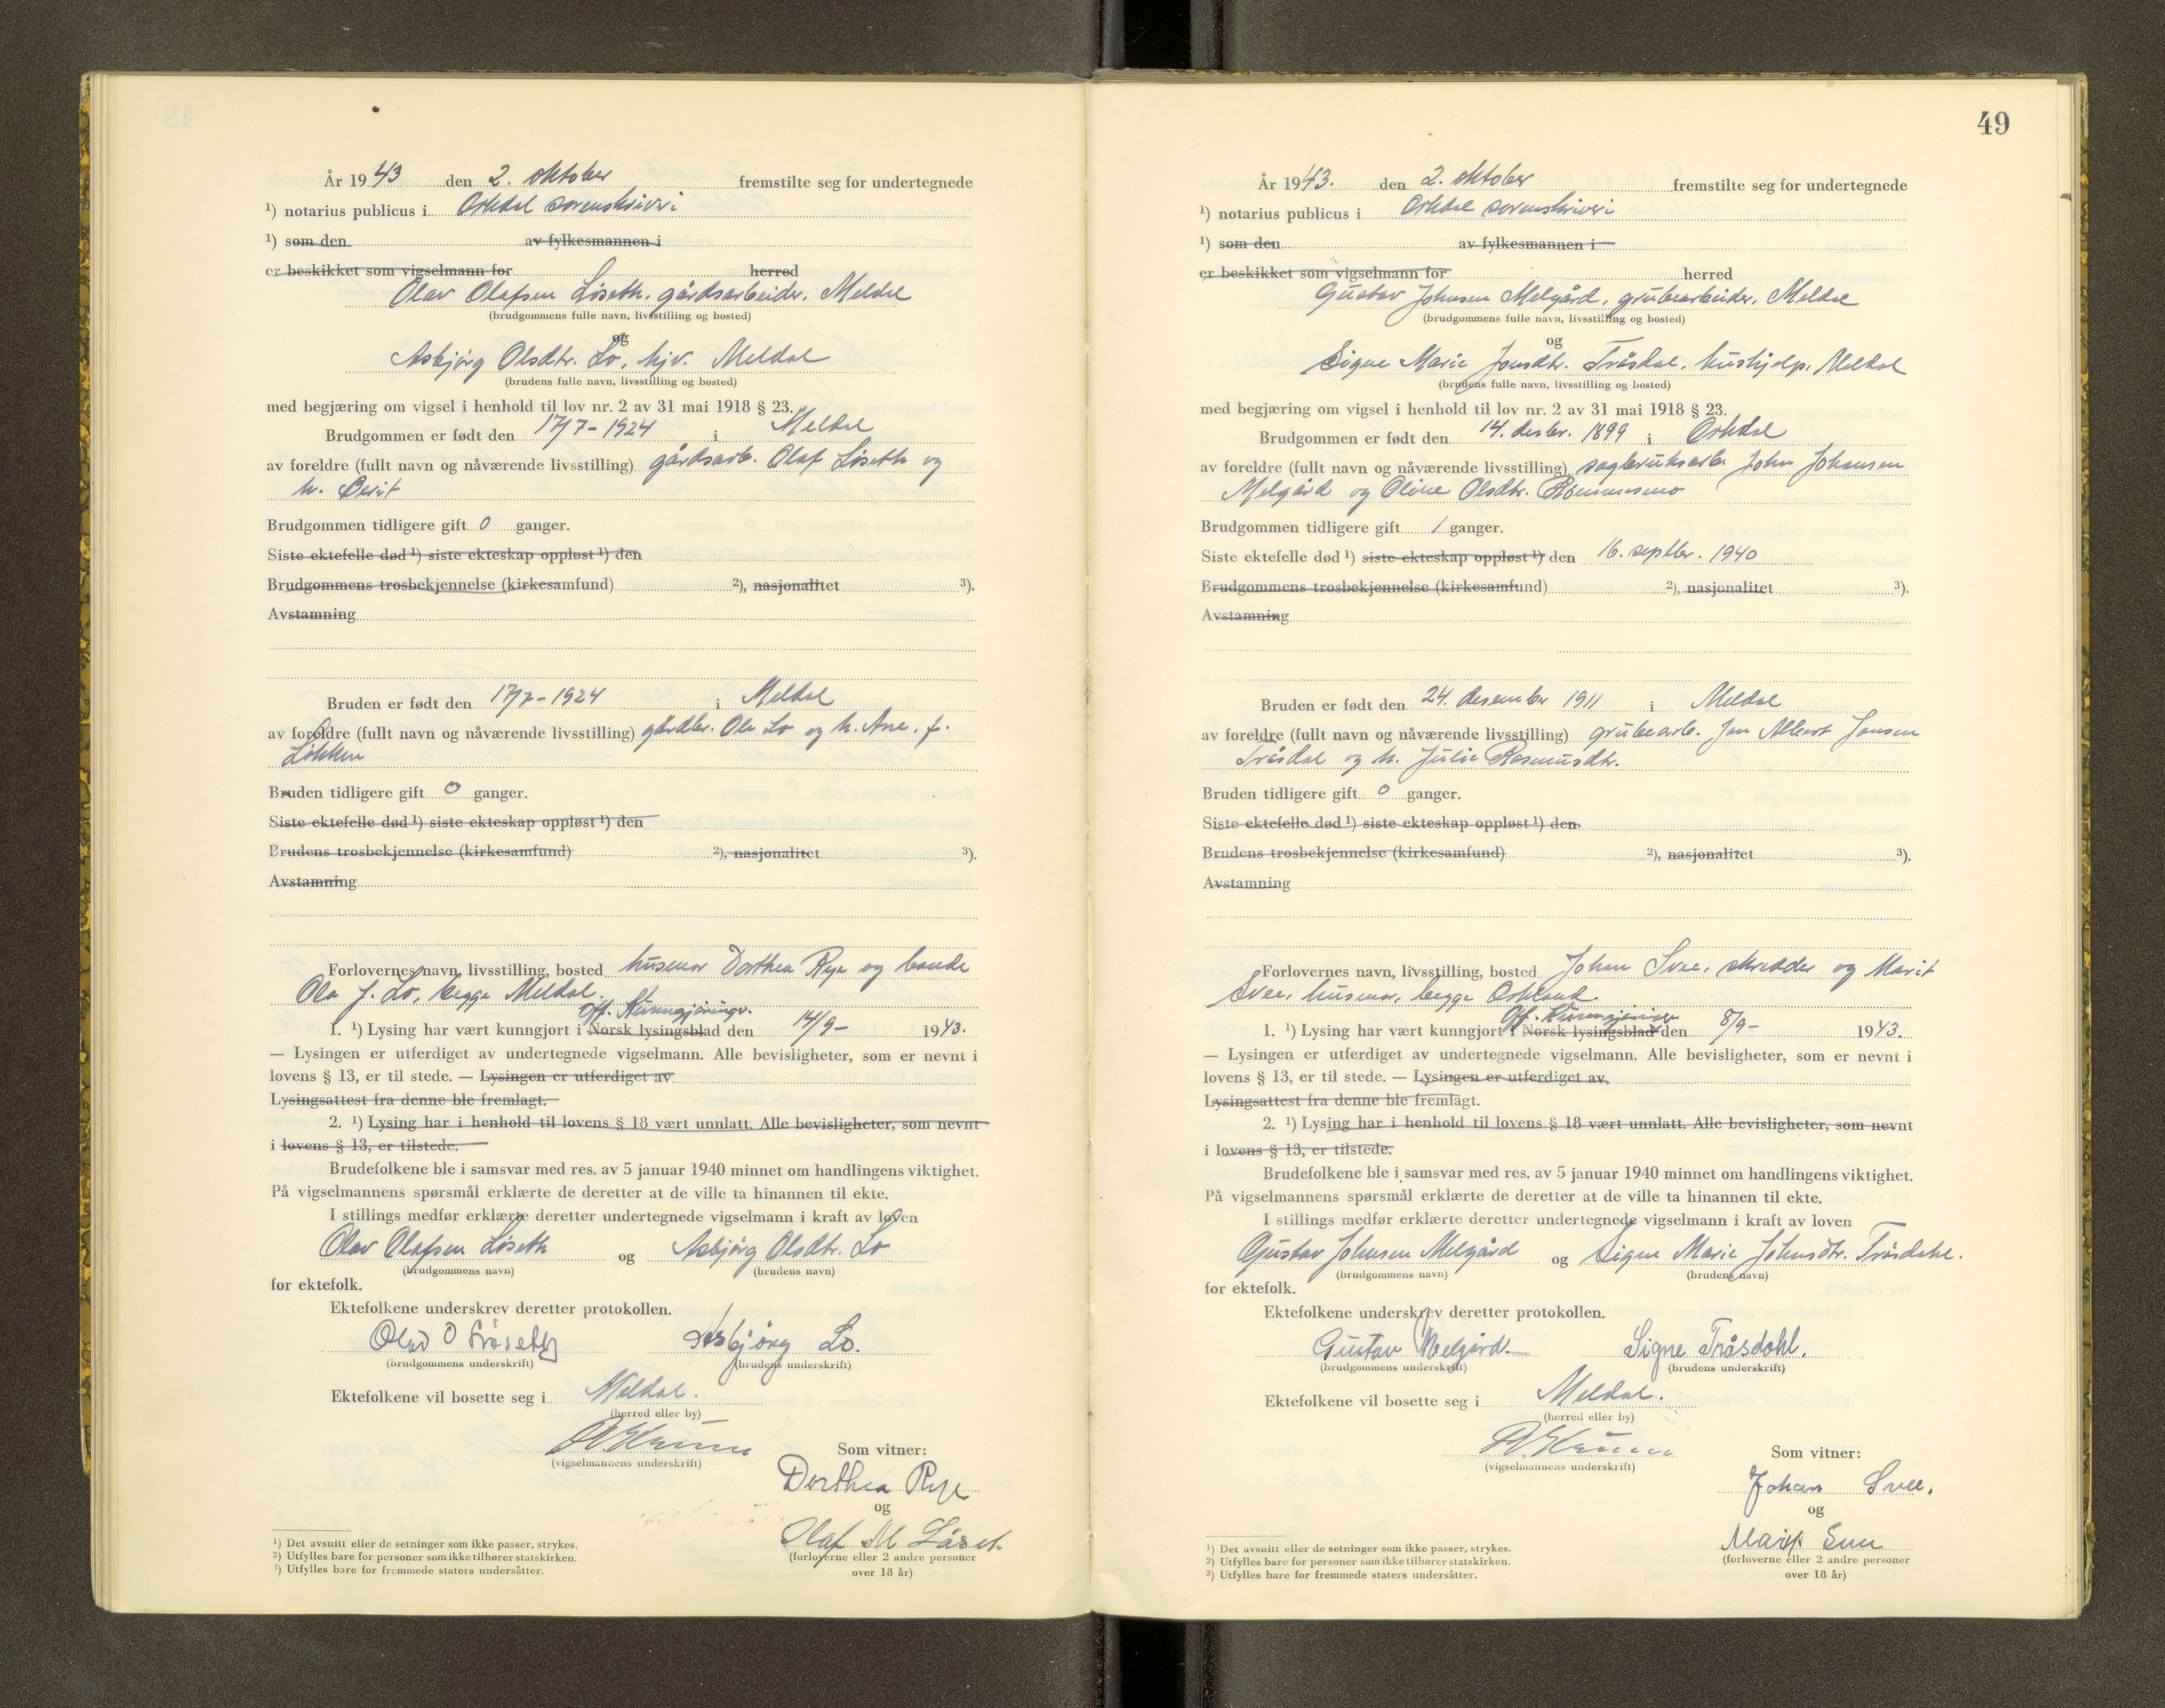 År 1943 den 2. oktober fremstilte seg for undertegnede
¹) notarius publicus i Orkdal sorenskriveri
¹) som den av fylkesmannen i
er beskikket som vigselmann for herred
Olav Olafsen Løseth, gårdsarbeider, Meldal
(brudgommens fulle navn, livsstilling og bosted)
og
Asbjørg Olsdtr. Lo, hjv. Meldal
(brudens fulle navn, livsstilling og bosted)
med begjæring om vigsel i henhold til lov nr. 2 av 31 mai 1918 § 23.
Brudgommen er født den 17/7-1924 i Meldal
av foreldre (fullt navn og nåværende livsstilling) gårdsarb. Olaf Løseth og
h. Berit
Brudgommen tidligere gift 0 ganger.
Siste ektefelle død ¹) siste ekteskap oppløst ¹) den
Brudgommens trosbekjennelse (kirkesamfund) ²), nasjonalitet ³).
Avstamning
Bruden er født den 17/7-1924 i Meldal
av foreldre (fullt navn og nåværende livsstilling) gårdbr. Ole Lo og h. Ane, f.
Løkken
Bruden tidligere gift 0 ganger.
Siste ektefelle død ¹) siste ekteskap oppløst ¹) den
Brudens trosbekjennelse (kirkesamfund) ²), nasjonalitet ³).
Avstamning
Forlovernes navn, livsstilling, bosted husmor Dorthea Rye og bonde
Ola J. Lo, begge Meldal.
Off. Kunngjøringr.
1. ¹) Lysing har vært kunngjort i Norsk lysingsblad den 14/9- 1943.
— Lysingen er utferdiget av undertegnede vigselmann. Alle bevisligheter, som er nevnt i
lovens § 13, er til stede. — Lysingen er utferdiget av
Lysingsattest fra denne ble fremlagt.
2. ¹) Lysing har i henhold til lovens § 18 vært unnlatt. Alle bevisligheter, som nevnt
i lovens § 13, er tilstede.
Brudefolkene ble i samsvar med res. av 5 januar 1940 minnet om handlingens viktighet.
På vigselmannens spørsmål erklærte de deretter at de ville ta hinannen til ekte.
I stillings medfør erklærte deretter undertegnede vigselmann i kraft av loven
Olav Olafsen Løseth og Asbjørg Olsdtr. Lo
(brudgommens navn) (brudens navn)
for ektefolk.
Ektefolkene underskrev deretter protokollen.
Olav O Løseth Asbjörg Lo.
(brudgommens underskrift) (brudens underskrift)
Ektefolkene vil bosette seg i Meldal.
(herred eller by)
(vigselmannens underskrift)
Som vitner:
Dorthea Rye
og
Olaf M Løset.
(forloverne eller 2 andre personer
over 18 år)
¹) Det avsnitt eller de setninger som ikke passer, strykes.
²) Utfylles bare for personer som ikke tilhører statskirken.
³) Utfylles bare for fremmede staters undersåtter.
49
År 1943. den 2. oktober fremstilte seg for undertegnede
¹) notarius publicus i Orkdal sorenskriveri
¹) som den av fylkesmannen i
er beskikket som vigselmann for herred
Gustav Johnsen Melgård, grubearbeider, Meldal
(brudgommens fulle navn, livsstilling og bosted)
og
Signe Marie Jonsdtr. Tråsdal, hushjelp, Meldal
(brudens fulle navn, livsstilling og bosted)
med begjæring om vigsel i henhold til lov nr. 2 av 31 mai 1918 § 23.
Brudgommen er født den 14. desbr. 1899 i Orkdal
av foreldre (fullt navn og nåværende livsstilling) sagbruksarb. John Johansen
Melgård og Oline Olsdtr.
Brudgommen tidligere gift 1 ganger.
Siste ektefelle død ¹) siste ekteskap oppløst ¹) den 16. septbr. 1940
Brudgommens trosbekjennelse (kirkesamfund) ²), nasjonalitet ³).
Avstamning
Bruden er født den 24. desember 1911 i Meldal
av foreldre (fullt navn og nåværende livsstilling) grubearb. Jon Albert Jonsen
Tråsdal og h. Julie Rasmusdtr.
Bruden tidligere gift 0 ganger.
Siste ektefelle død ¹) siste ekteskap oppløst ¹) den
Brudens trosbekjennelse (kirkesamfund) ²), nasjonalitet ³).
Avstamning
Forlovernes navn, livsstilling, bosted Johan Svee, skredder og Marit
Svee, husmor, begge Orkland
Off. Kunngjøringer
1. ¹) Lysing har vært kunngjort i Norsk lysingsblad den 8/9- 1943.
— Lysingen er utferdiget av undertegnede vigselmann. Alle bevisligheter, som er nevnt i
lovens § 13, er til stede. — Lysingen er utferdiget av
Lysingsattest fra denne ble fremlagt.
2. ¹) Lysing har i henhold til lovens § 18 vært unnlatt. Alle bevisligheter, som nevnt
i lovens § 13, er tilstede.
Brudefolkene ble i samsvar med res. av 5 januar 1940 minnet om handlingens viktighet.
På vigselmannens spørsmål erklærte de deretter at de ville ta hinannen til ekte.
I stillings medfør erklærte deretter undertegnede vigselmann i kraft av loven
Gustav Johnsen Melgård og Signe Marie Johnsdtr. Tråsdahl.
(brudgommens navn) (brudens navn)
for ektefolk.
Ektefolkene underskrev deretter protokollen.
Gustav Melgård Signe Tråsdahl.
(brudgommens underskrift) (brudens underskrift)
Ektefolkene vil bosette seg i Meldal.
(herred eller by)
(vigselmannens underskrift)
Som vitner:
Johan Svee.
og
Marit Svee
(forloverne eller 2 andre personer
over 18 år)
¹) Det avsnitt eller de setninger som ikke passer, strykes.
²) Utfylles bare for personer som ikke tilhører statskirken.
³) Utfylles bare for fremmede staters undersåtter.